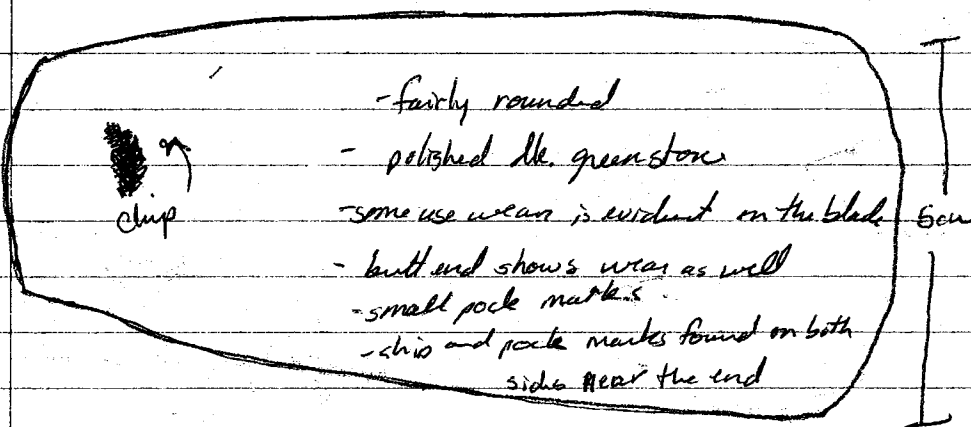 - fairly rounded
- polished dk. greenstone
- some use wear is evident on the blade
5cm
chip
- butt end shows wear as well
- small pock marks.
- chip and pock marks found on both
sides near the end